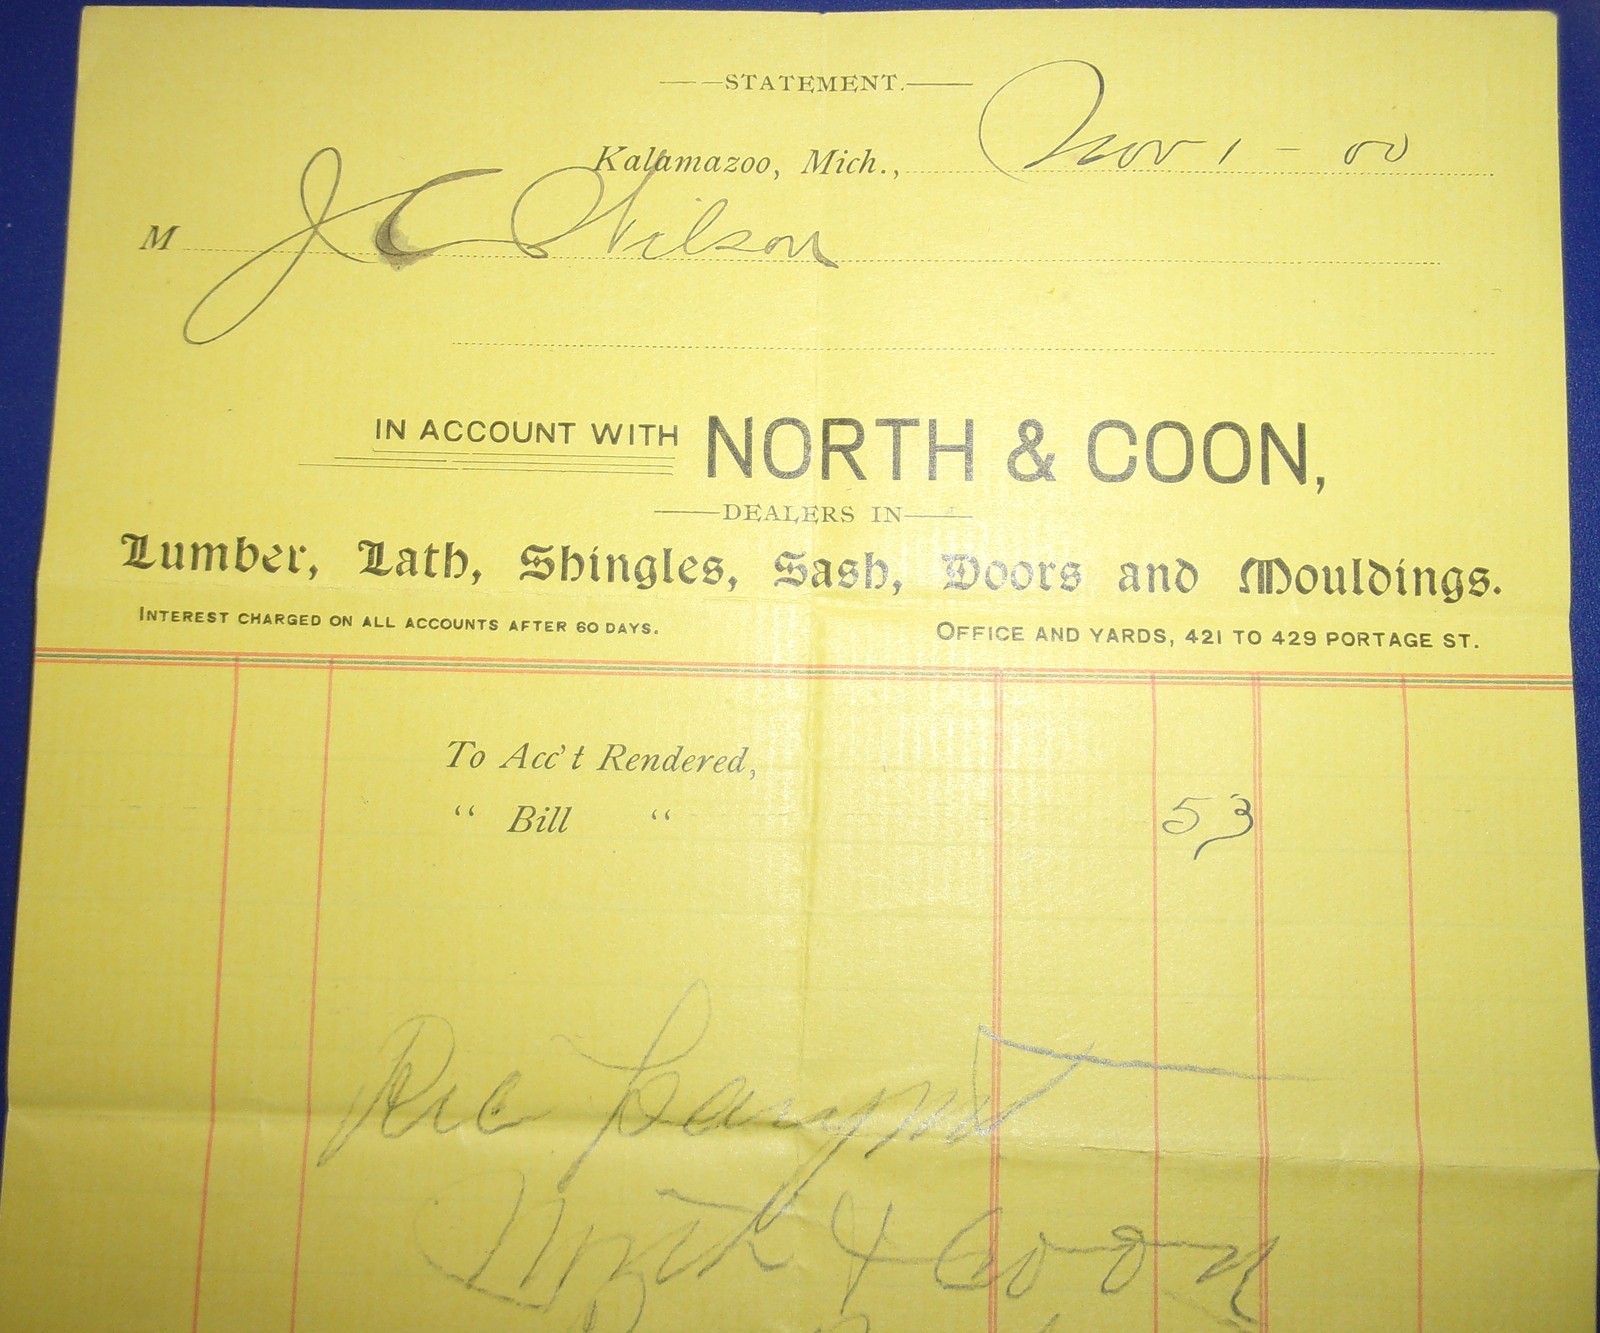 STATEMENT.
Kalamazoo, Mich., Nov 1 - 00
M J C Wilson
IN ACCOUNT WITH NORTH & COON,
DEALERS IN
Lumber, Lath, Shingles, Sash, Doors and Mouldings.
INTEREST CHARGED ON ALL ACCOUNTS AFTER 60 DAYS. OFFICE AND YARDS, 421 TO 429 PORTAGE ST.
To Acc't Rendered,
“ Bill “ 53
Rec Paymt
North & Coon